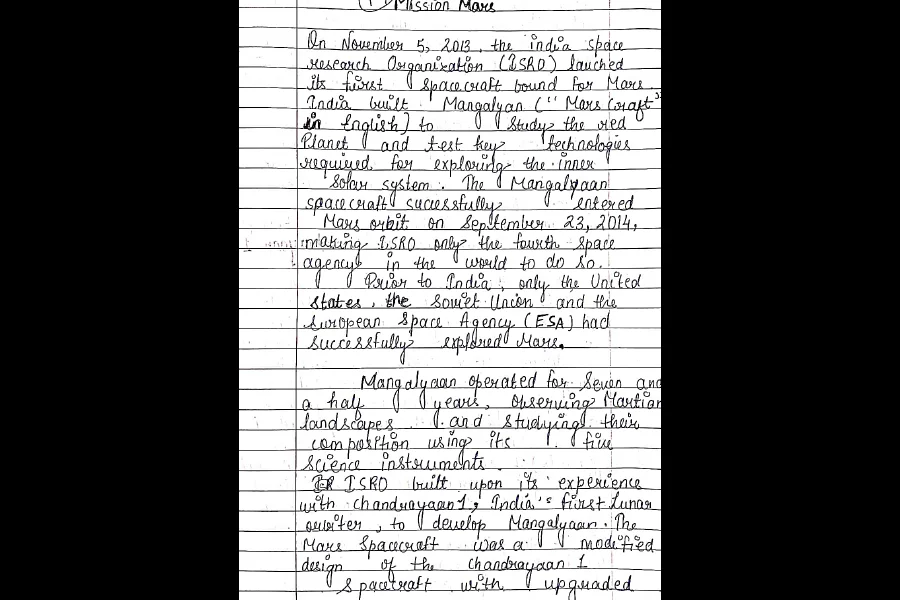 1 Mission Mars
On November 5, 2013, the india space
research Organization (ISRO) lauched
its first spacecraft bound for Mars.
India built Mangalyan ("Mars Craft"
in English) to study the red
Planet and test key technologies
required for exploring the inner
Solar system. The Mangalyaan
spacecraft sucessfully entered
Mars orbit on September 23, 2014,
making ISRO only the fourth space
agency in the world to do so.
Prior to India, only the United
states, the Soviet Union and the
European Space Agency (ESA) had
successfully explored Mars.
Mangalyaan operated for Seven and
a half years, observing Martian
landscapes and studying their
composition using its five
science instruments.
ISRO built upon its experience
with chandrayaan 1, India's first Lunar
orbiter, to develop Mangalyaan. The
Mars Spacecraft was a modified
design of the chandrayaan 1
spacecraft with upgraded